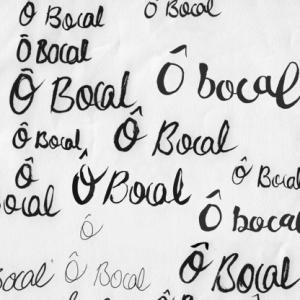 Ô Bocal
Ô Bocal
Ô Bocal
Ô Bocal
Ô bocal
Ô Bocal
Ô Bocal
Ô
Bocal
Ô Bocal
Ô Bocal
Ô bocal
Ô
Bocal
Ô Bocal
Ô Bocal